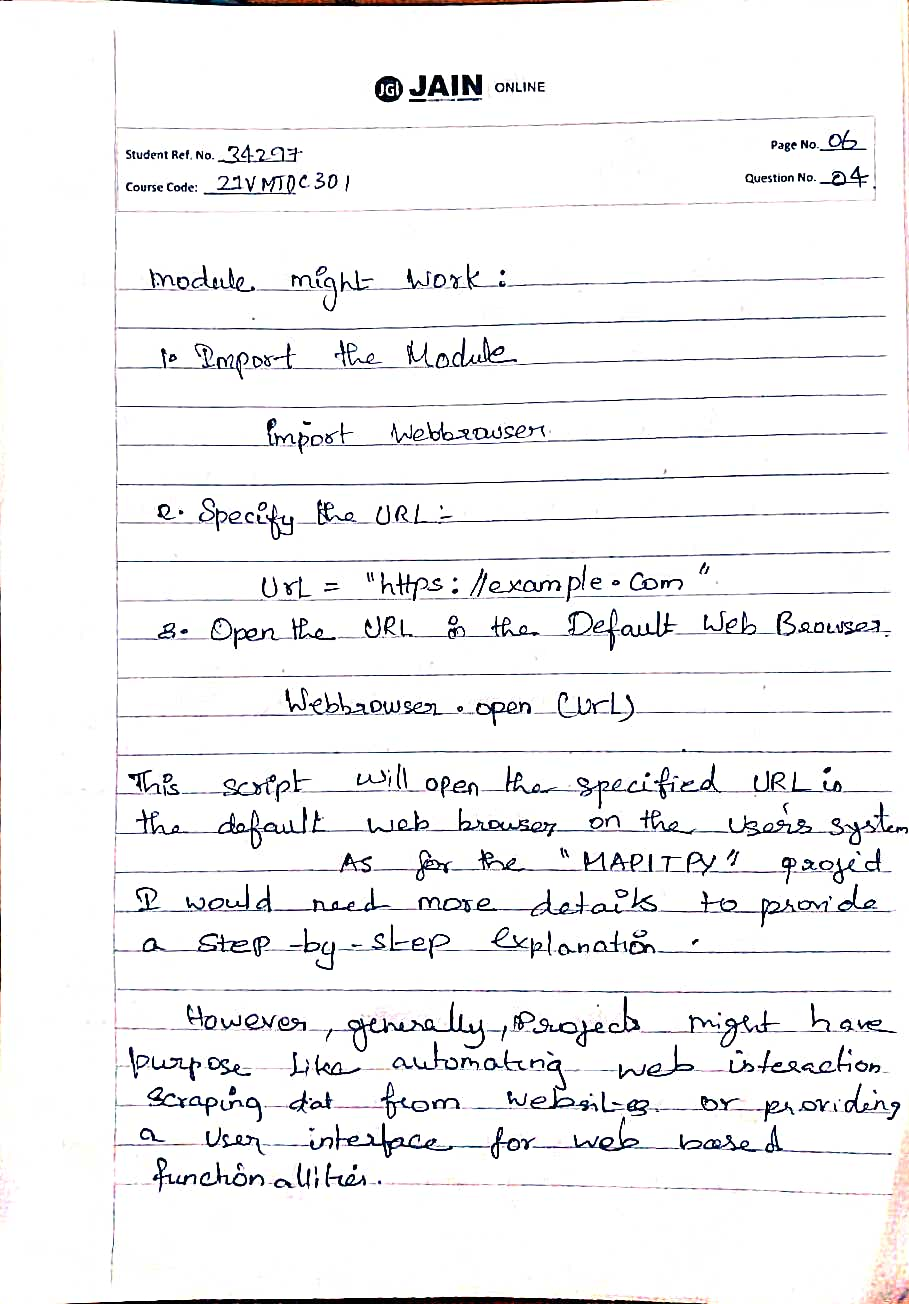 JGI JAIN ONLINE
Student Ref. No. 34297
Page No. 06
Course Code: 21VMTOC301
Question No. 04
Module might Work:
1. Import the Module
Import Webbrowser
2. Specify the URL:-
Url = "https://example.com"
3. Open the URL in the Default Web Browser.
Webbrowser.open (Url)
This script will open the specified URL in
the default web browser on the user's system
As for the "MAPITPY" project
I would need more details to provide
a step-by-step explanation.
However, generally, Projects might have
purpose like automating web interaction
scraping dat from websites or providing
a User interface for web based
functionallities.